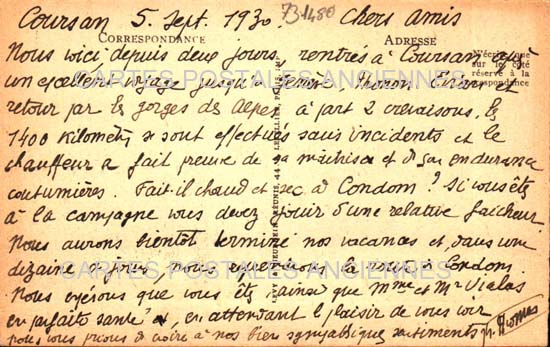 Coursan 5. Sept. 1930. Chers amis
731480
CORRESPONDANCE ADRESSE
Nous voici depuis deux jours, rentrés à Coursan après
un excellent voyage jusqu'à Genève, Thonon, Evian et
retour par les gorges des Alpes, à part 2 crevaisons, les
1400 kilomètres se sont effectués sans incidents et le
chauffeur a fait preuve de sa maîtrise et de son endurance
coutumières. Fait-il chaud et sec à Condom ? Si vous êtes
à la campagne vous devez jouir d'une relative fraîcheur.
Nous aurons bientôt terminé nos vacances et, dans une
dizaine de jours, nous à Condom.
Nous espérons que vous êtes ainsi que Mme et Mr Vialas
en parfaite santé et, en attendant le plaisir de vous voir
nous vous prions de croire à nos bien sympathiques sentiments
Thomas
N'écrire que
sur le côté
réservé à la
correspondance
LEVY ET NEURDEIN RÉUNIS, 44, RUE LETELLIER, PARIS
CARTES POSTALES ANCIENNES
CARTES POSTALES ANCIENNES